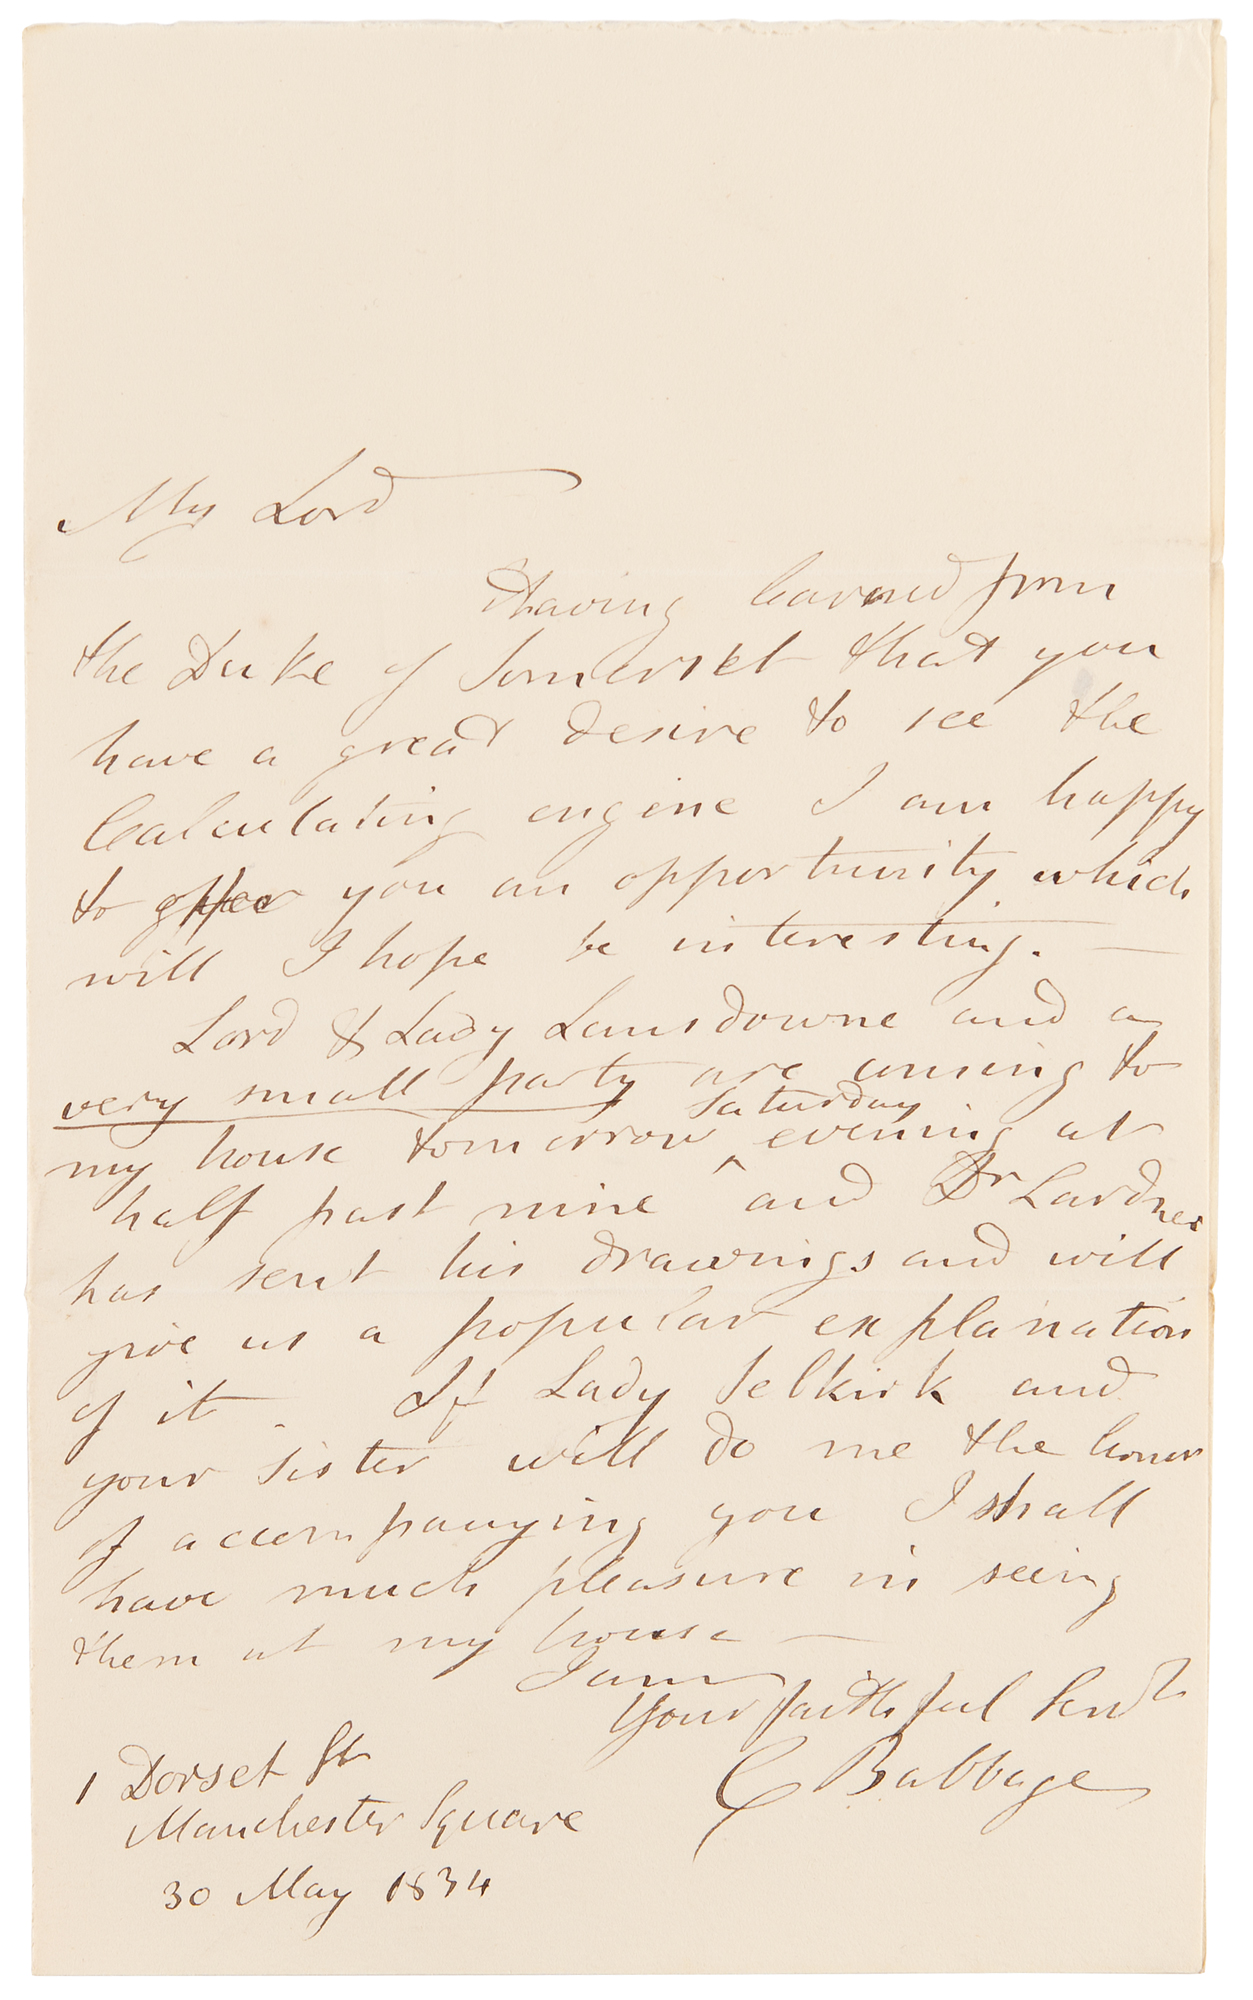 My Lord
Having learned from
the Duke of Somerset that you
have a great desire to see the
Calculating engine I am happy
to offer you an opportunity which
will I hope be interesting. —
Lord & Lady Lansdowne and a
very small party are coming to
Saturday
my house tomorrow ^ evening at
half past nine and Dr Lardner
has sent his drawings and will
give us a popular explanation
of it. If Lady Selkirk and
your sister will do me the honor
of accompanying you I shall
have much pleasure in seeing
them at my house —
I am
Your faithful Servt
C Babbage
1 Dorset St
Manchester Square
30 May 1834